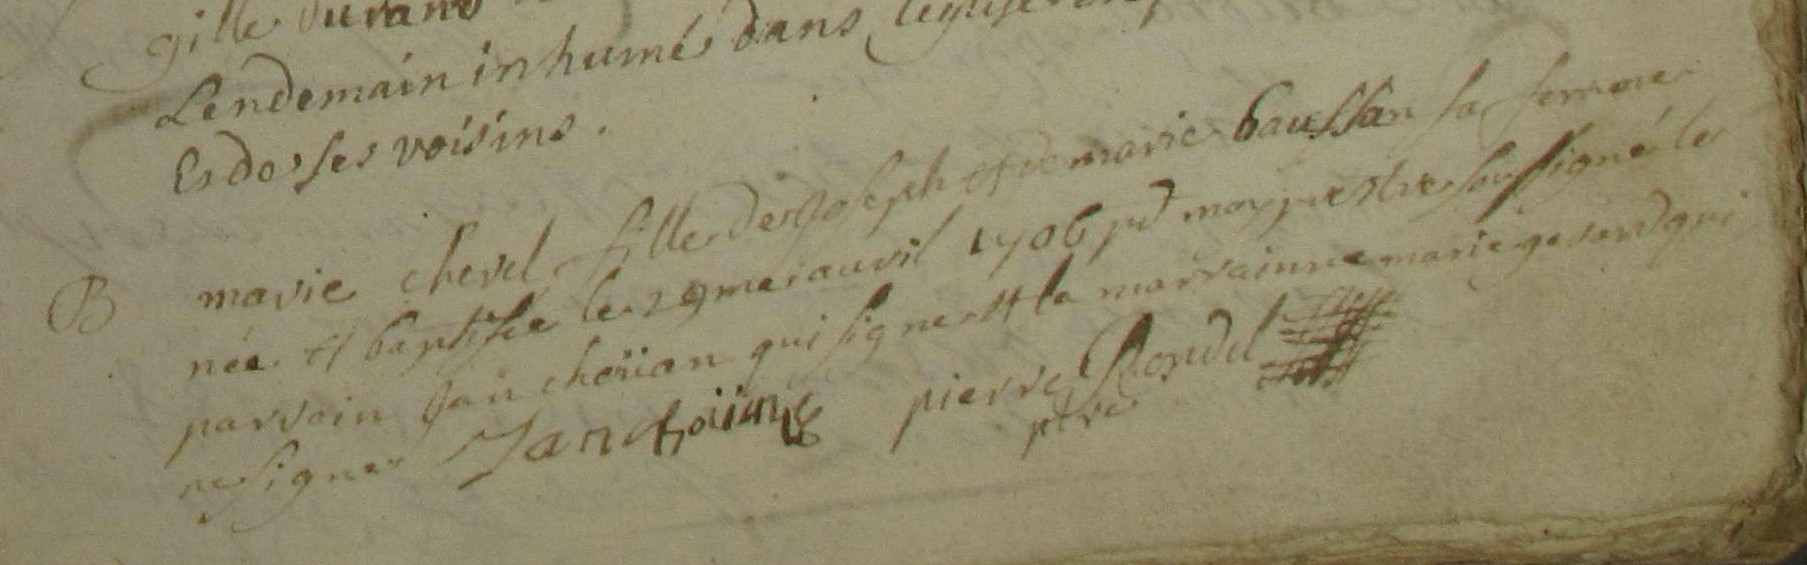 gille durand
Lendemain inhumé dans leglise
Es de ses voisins.
B marie chevel fille de Joseph et de marie baussan sa femme
née et baptisée le 29me iauvil 1706 pd moy prestre soussigné le
parvain Jan choüan qui signe et la marvainne marie gesard qui
ne signe Jan choüan pierre Rondel
ptre